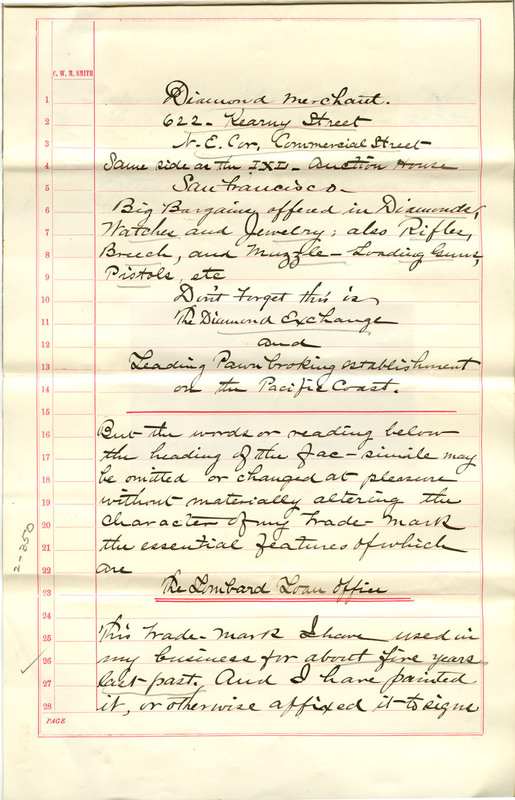 C. W. M. SMITH
1 Diamond Merchant.
2 622 - Kearny Street
3 N. E. Cor. Commercial Street
4 Same side as the IXL - Auction House
5 San Francisco -
6 Big Bargains offered in Diamonds,
7 Watches and Jewelry; also Rifles,
8 Breech, and Muzzle - Loading Guns,
9 Pistols, etc
10 Don't forget this is
11 The Diamond Exchange
12 and
13 Leading Pawnbroking establishment
14 on the Pacific Coast.
15
16 But the words or reading below
17 the heading of the fac-simile may
18 be omitted or changed at pleasure
19 without materially altering the
20 character of my trade-mark
21 the essential features of which
22 are
23 The Lombard Loan Office
24
25 This trade-mark I have used in
26 my business for about five years
27 last past. And I have painted
28 it, or otherwise affixed it to signs
PAGE
2-250